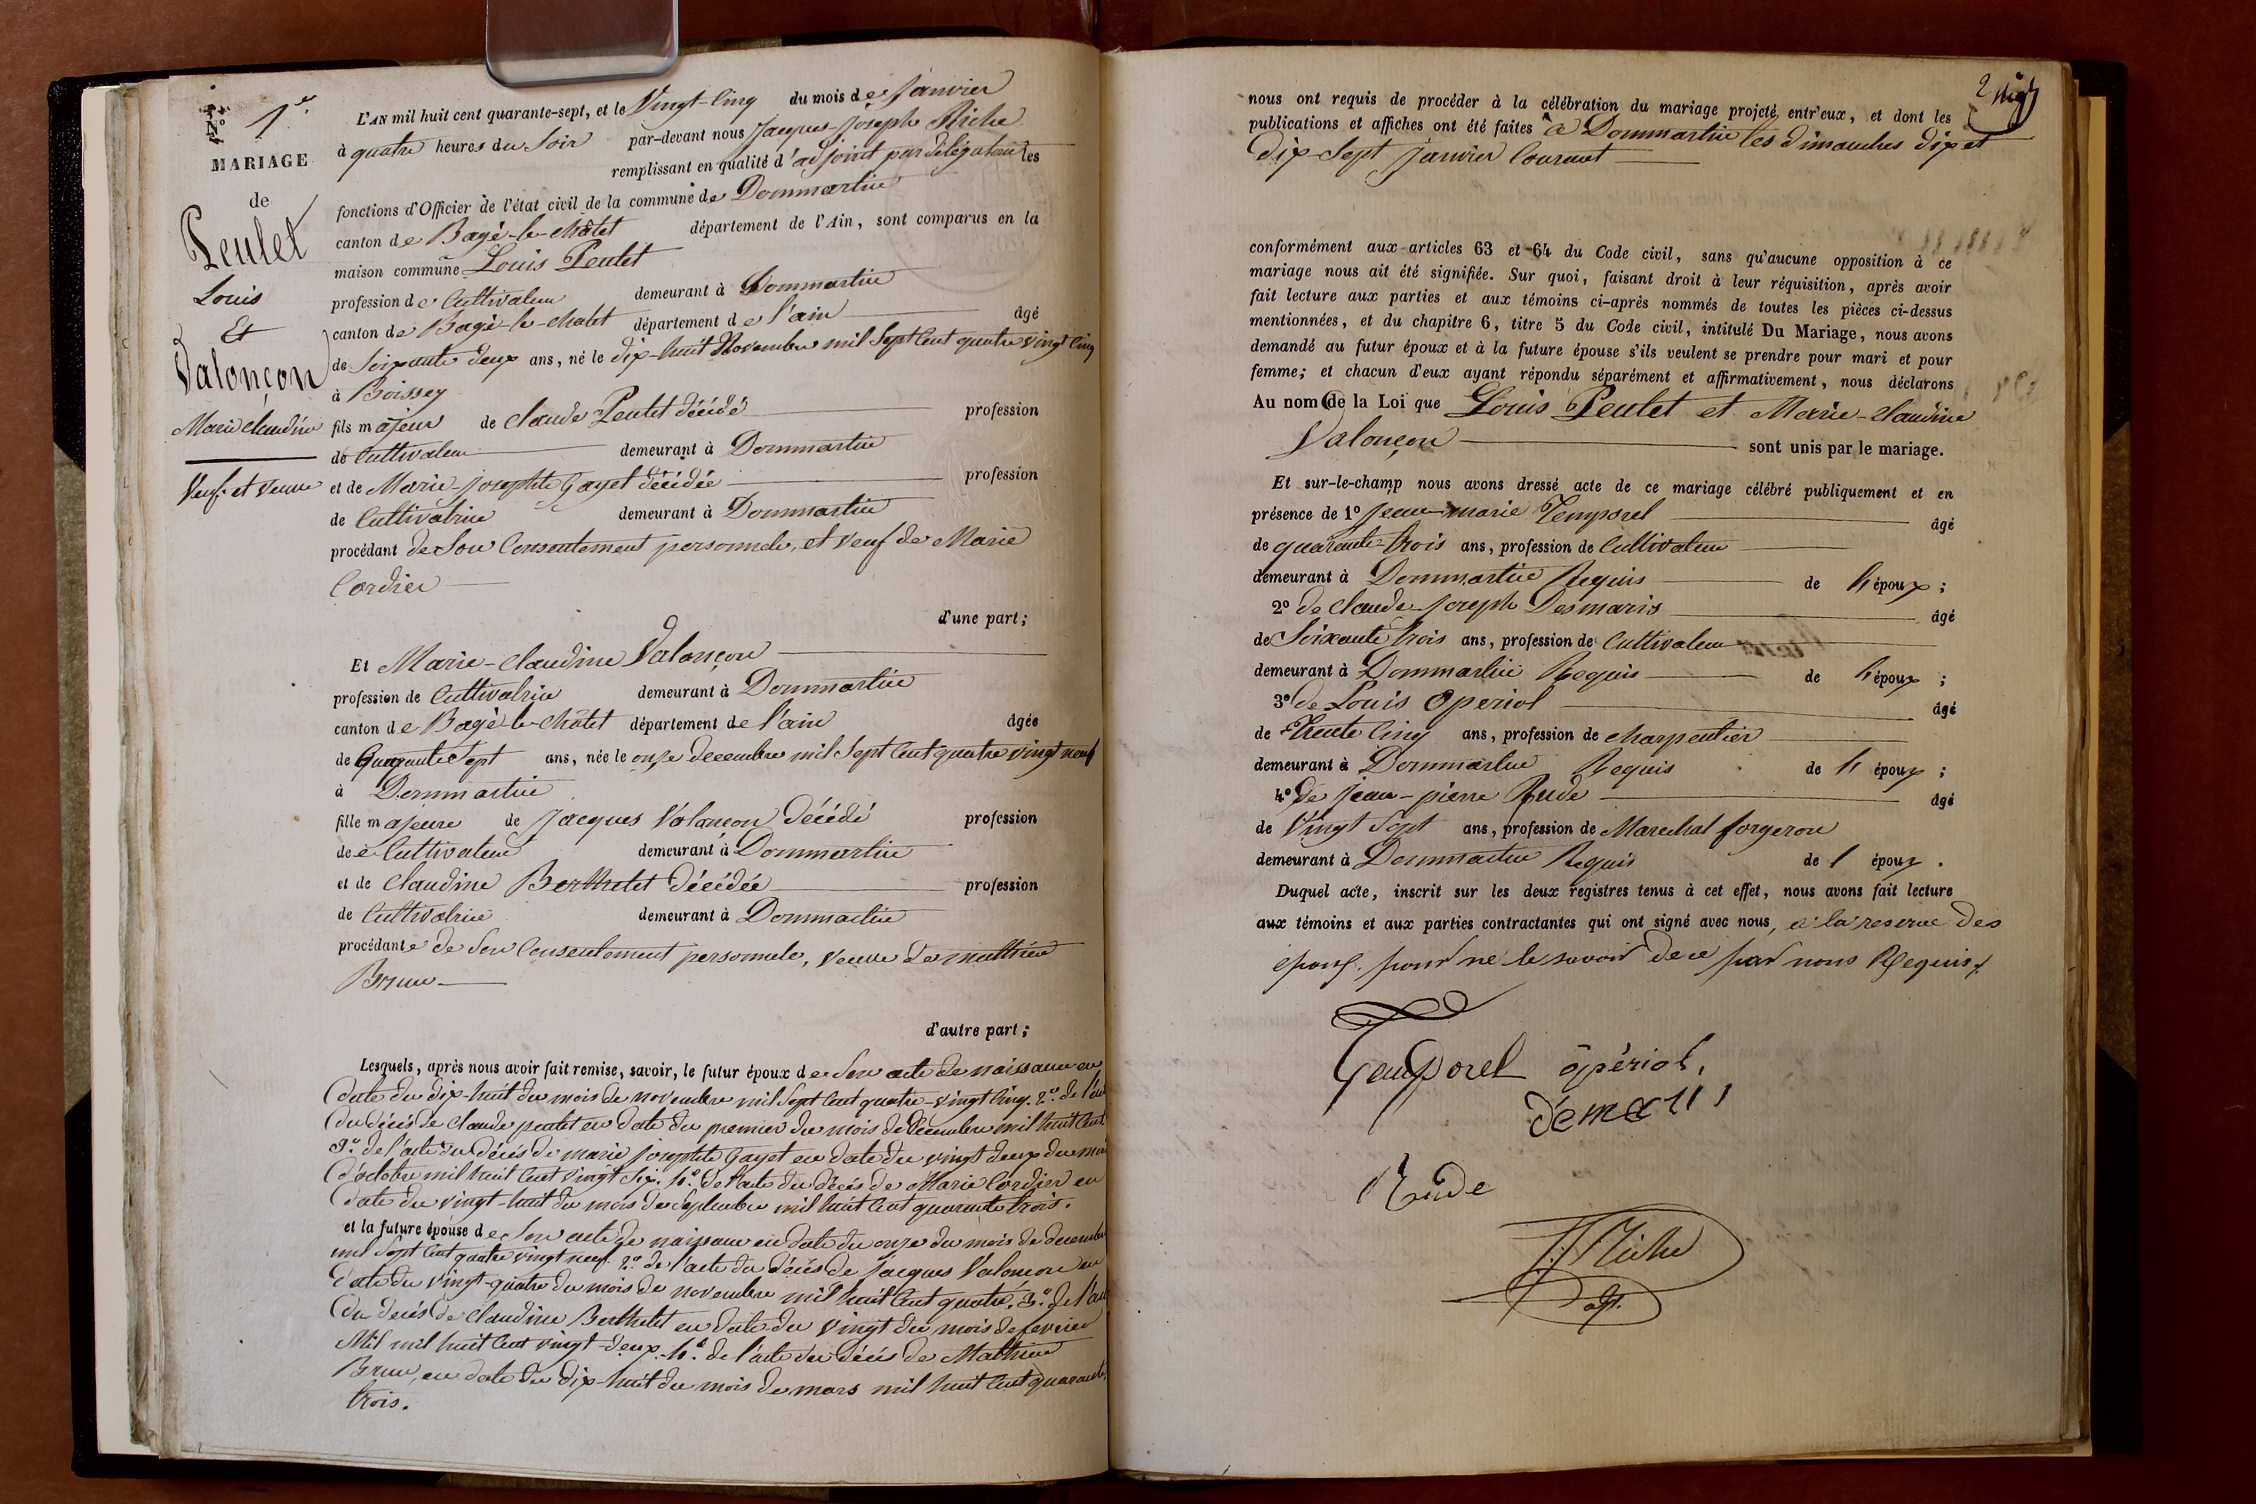 N° 1er
MARIAGE
de
Peulet
Louis
Et
Valonçon
Marie Claudine
Veuf et Veuve
L'AN mil huit cent quarante-sept, et le Vingt-Cinq du mois de Janvier
à quatre heures du Soir par-devant nous Jacques-Joseph Riche
remplissant en qualité d'adjoint par délégation les
fonctions d'Officier de l'état civil de la commune de Dommartin
canton de Bagé-le-châtel département de l'Ain, sont comparus en la
maison commune Louis Peulet
profession de Cultivateur demeurant à Dommartin
canton de Bagé-le-chatel département de l'ain âgé
de Soixante deux ans, né le dix-huit Novembre mil Sept Cent quatre vingt Cinq
à Boissey
fils majeur de Claude Peulet décédé profession
de Cultivateur demeurant à Dommartin
et de Marie-Josephte Gayet décédée profession
de Cultivatrice demeurant à Dommartin
procédant de Son Consentement personnele, et veuf de Marie
Cordier
d'une part;
Et Marie-Claudine Valonçon
profession de Cultivatrice demeurant à Dommartin
canton de Bagé-le-Châtel département de l'ain âgée
de Quarante Sept ans, née le onze decembre mil Sept Cent quatre vingt neuf
à Dommartin
fille majeure de Jacques Valoncon décédé profession
de Cultivateur demeurant à Dommartin
et de Claudine Berthelet décédée profession
de Cultivatrice demeurant à Dommartin
procédante de Son Consentement personnele, veuve de Mathieu
Brun
d'autre part;
Lesquels, après nous avoir fait remise, savoir, le futur époux de Son acte de naissance en
date du dix-huit du mois de novembre mil Sept Cent quatre-vingt Cinq. 2° de l'acte
du décés de Claude peulet en date du premier du mois de Décembre mil huit Cent
3° de l'acte du décés de marie josephte Gayet en date du vingt deux du mois
d'octobre mil huit Cent vingt Six. 4° de l'acte du décés de Marie Cordier en
date du vingt-huit du mois de Septembre mil huit Cent quarante trois.
et la future épouse de Son acte de naissance en date du onze du mois de decembre
mil Sept Cent quatre vingt neuf. 2° de l'acte du décés de Jacques Valoncon en
date du vingt-quatre du mois de novembre mil huit Cent quatre. 3° de l'acte
du decés de Claudine Berthelet en date du vingt du mois de fevrier
Mil mil huit Cent vingt-deux. 4° de l'acte du décés de Mathieu
Brun, en date du dix-huit du mois de mars mil huit Cent quarante
trois.
2
nous ont requis de procéder à la célébration du mariage projeté entr'eux, et dont les
publications et affiches ont été faites à Dommartin les dimanches dix et
dix-Sept Janvier Courant
conformément aux articles 63 et 64 du Code civil, sans qu'aucune opposition à ce
mariage nous ait été signifiée. Sur quoi, faisant droit à leur réquisition, après avoir
fait lecture aux parties et aux témoins ci-après nommés de toutes les pièces ci-dessus
mentionnées, et du chapitre 6, titre 5 du Code civil, intitulé Du Mariage, nous avons
demandé au futur époux et à la future épouse s'ils veulent se prendre pour mari et pour
femme; et chacun d'eux ayant répondu séparément et affirmativement, nous déclarons
Au nom de la Loi que Louis Peulet et Marie-Claudine
Valonçon sont unis par le mariage.
Et sur-le-champ nous avons dressé acte de ce mariage célébré publiquement et en
présence de 1° Jean marie Temporel âgé
de quarante-trois ans, profession de Cultivateur
demeurant à Dommartin Requis de l'époux;
2° de Claude-Joseph Desmaris âgé
de Soixante trois ans, profession de Cultivateur
demeurant à Dommartin Requis de l'époux;
3° de Louis Operiol âgé
de Trente Cinq ans, profession de Charpentier
demeurant à Dommartin Requis de l'époux;
4° de Jean-pierre Rude âgé
de Vingt Sept ans, profession de Marechal forgeron
demeurant à Dommartin Requis de l'époux.
Duquel acte, inscrit sur les deux registres tenus à cet effet, nous avons fait lecture
aux témoins et aux parties contractantes qui ont signé avec nous, a la reserve des
époux. pour ne le savoir de ce par nous Requis.
Temporel opériol,
démaris
Rude
J. J. Riche
adjt.